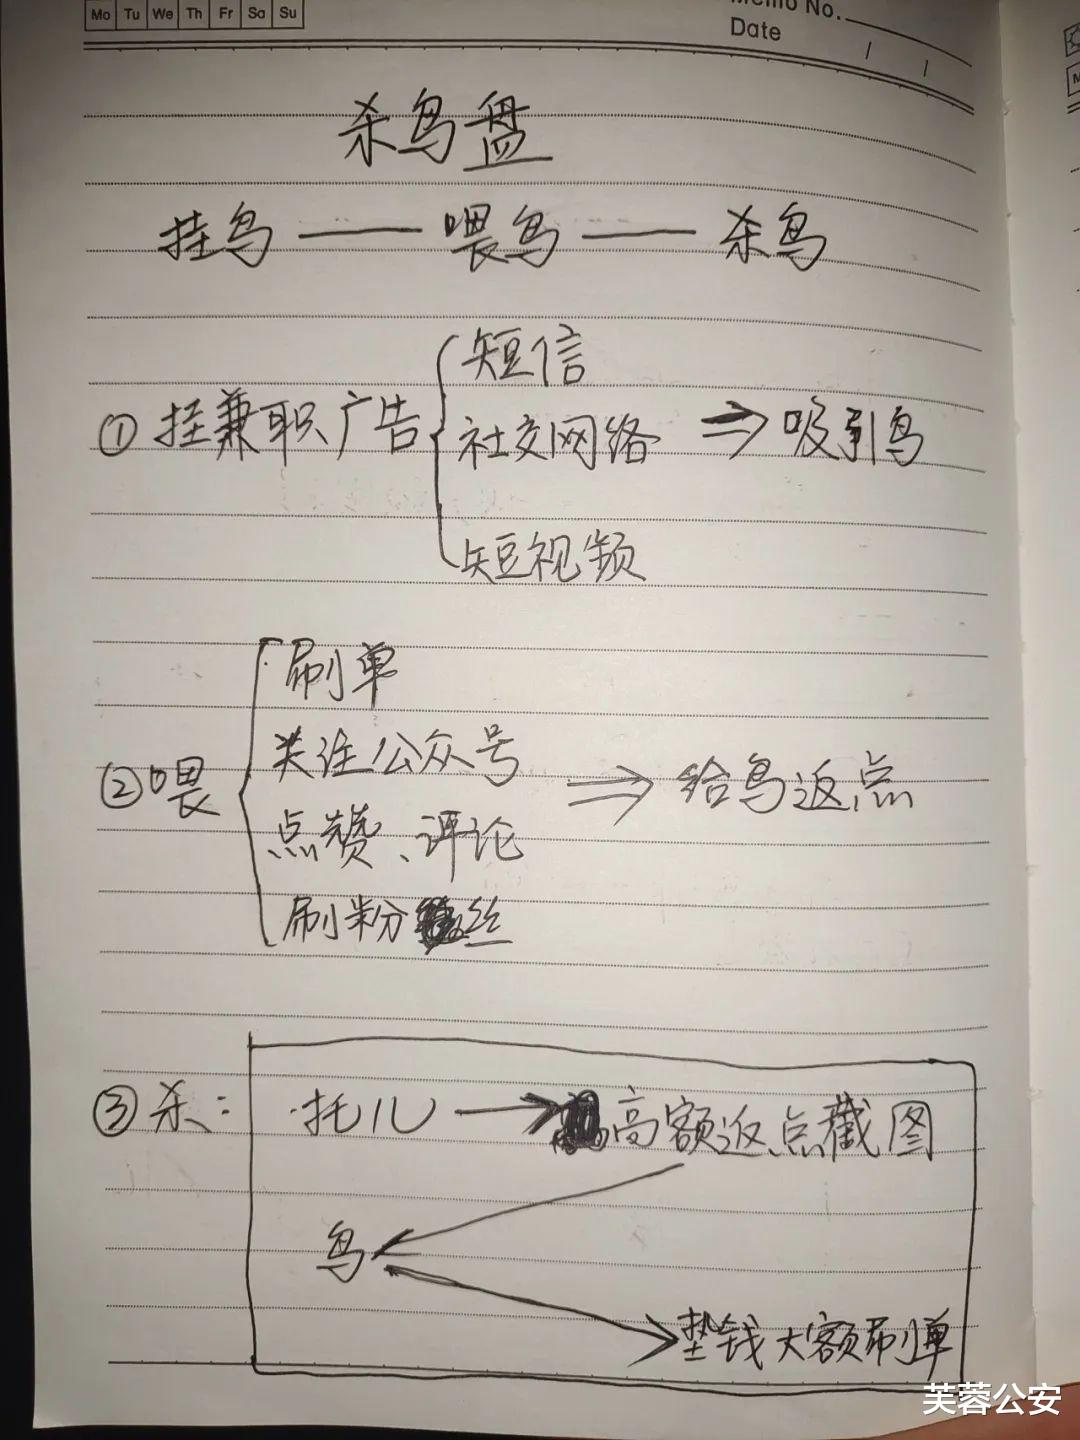 Mo Tu We Th Fr Sa Su
Memo No.
Date / /
杀鸟盘
挂鸟——喂鸟——杀鸟
①挂兼职广告
短信
社交网络 ⇒ 吸引鸟
短视频
②喂
刷单
关注公众号
点赞、评论
刷粉丝
⇒ 给鸟返点
③杀:
托儿 → 高额返点截图
鸟
垫钱大额刷单
芙蓉公安